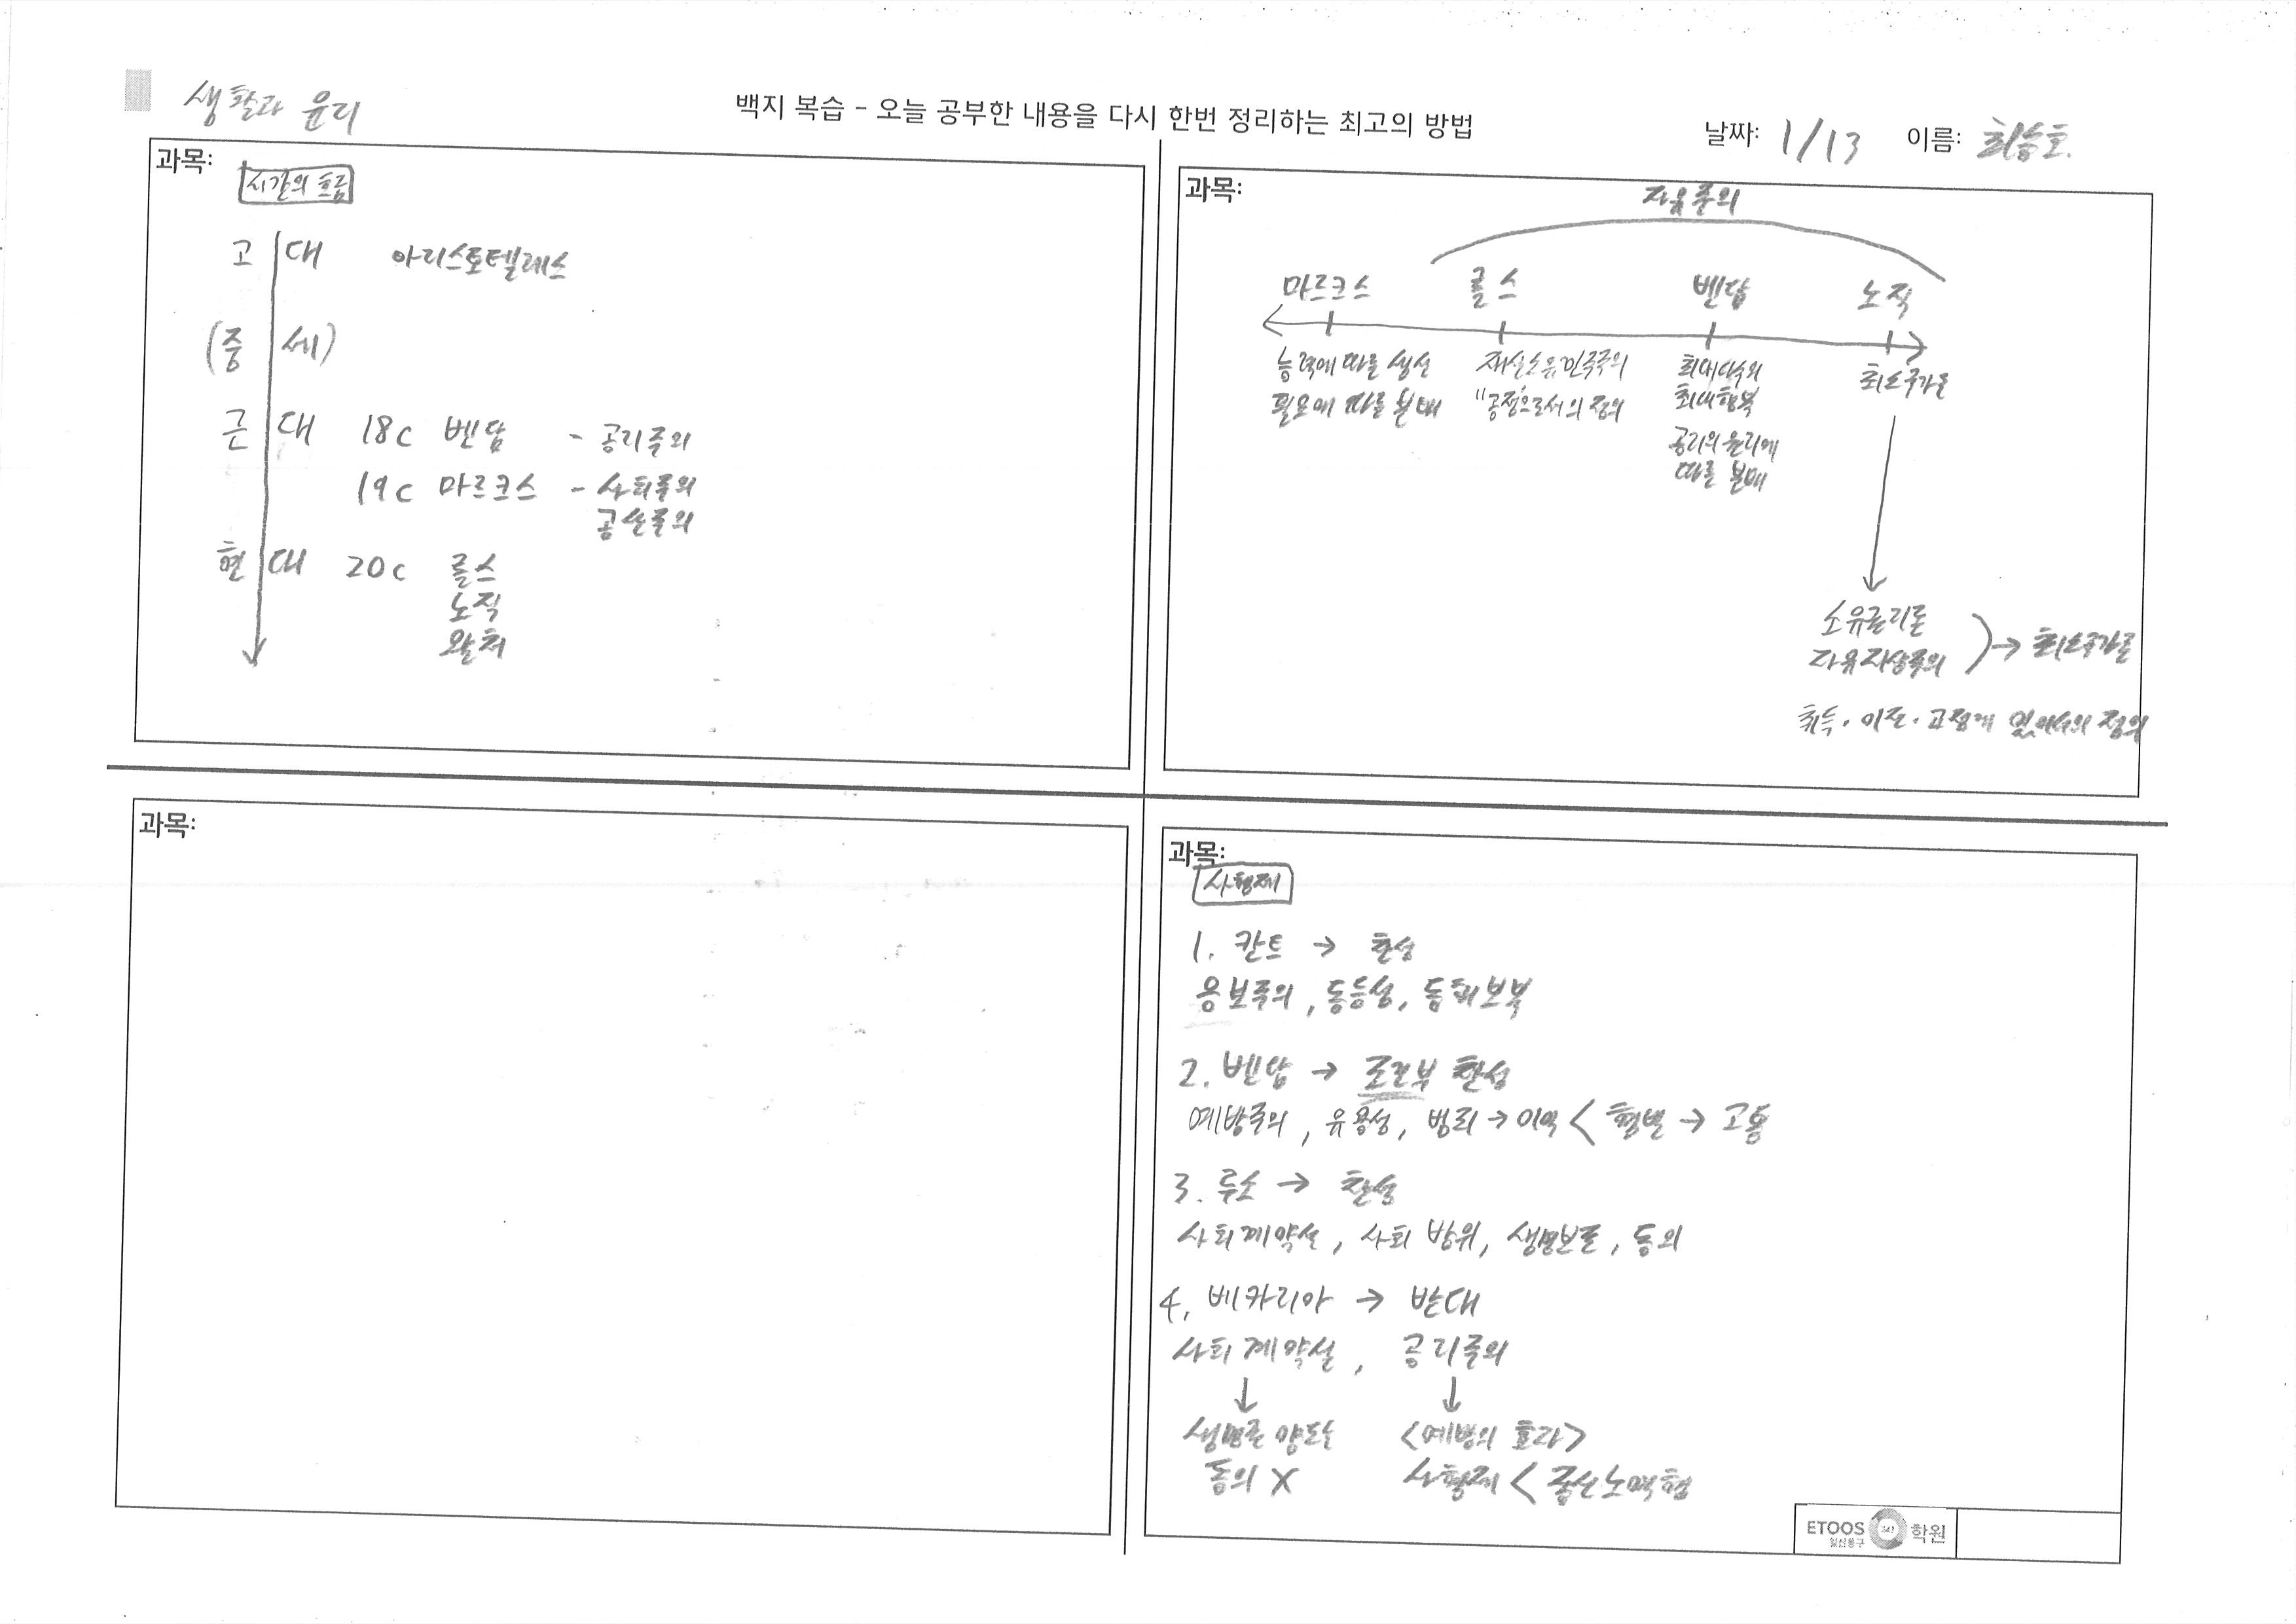 생활과 윤리
백지 복습 - 오늘 공부한 내용을 다시 한번 정리하는 최고의 방법
날짜: 1/13 이름: 최승호.
과목:
시간의 흐름
고대 아리스토텔레스
(중세)
근대 18c 벤담 - 공리주의
19c 마르크스 - 사회주의
공산주의
현대 20c 롤스
노직
왈처
과목:
자유주의
마르크스 롤스 벤담 노직
능력에 따른 생산
필요에 따른 분배
재산소유 민주주의
"공정으로서의 정의
최대다수의
최대행복
공리의 윤리에
따른 분배
최소국가론
소유권리론
자유지상주의
→ 최소국가론
취득·이전·교정에 있어서의 정의
과목:
과목:
사형제
1. 칸트 → 찬성
응보주의, 동등성, 동해보복
2. 벤담 → 조건부 찬성
예방주의, 유용성, 범죄 → 이익 < 형벌 → 고통
3. 루소 → 찬성
사회계약설, 사회 방위, 생명보존, 동의
4. 베카리아 → 반대
사회계약설, 공리주의
↓ ↓
생명권 양도는 <예방의 효과>
동의 X 사형제 < 종신노역형
ETOOS 247 학원
일산동구